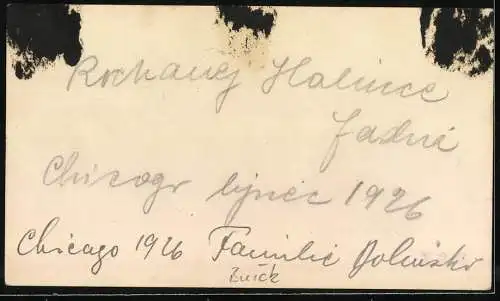 Kochanej Halince
Jadzi
Chicago lipiec 1926
Chicago 1926 Familie Dolinski
Buick